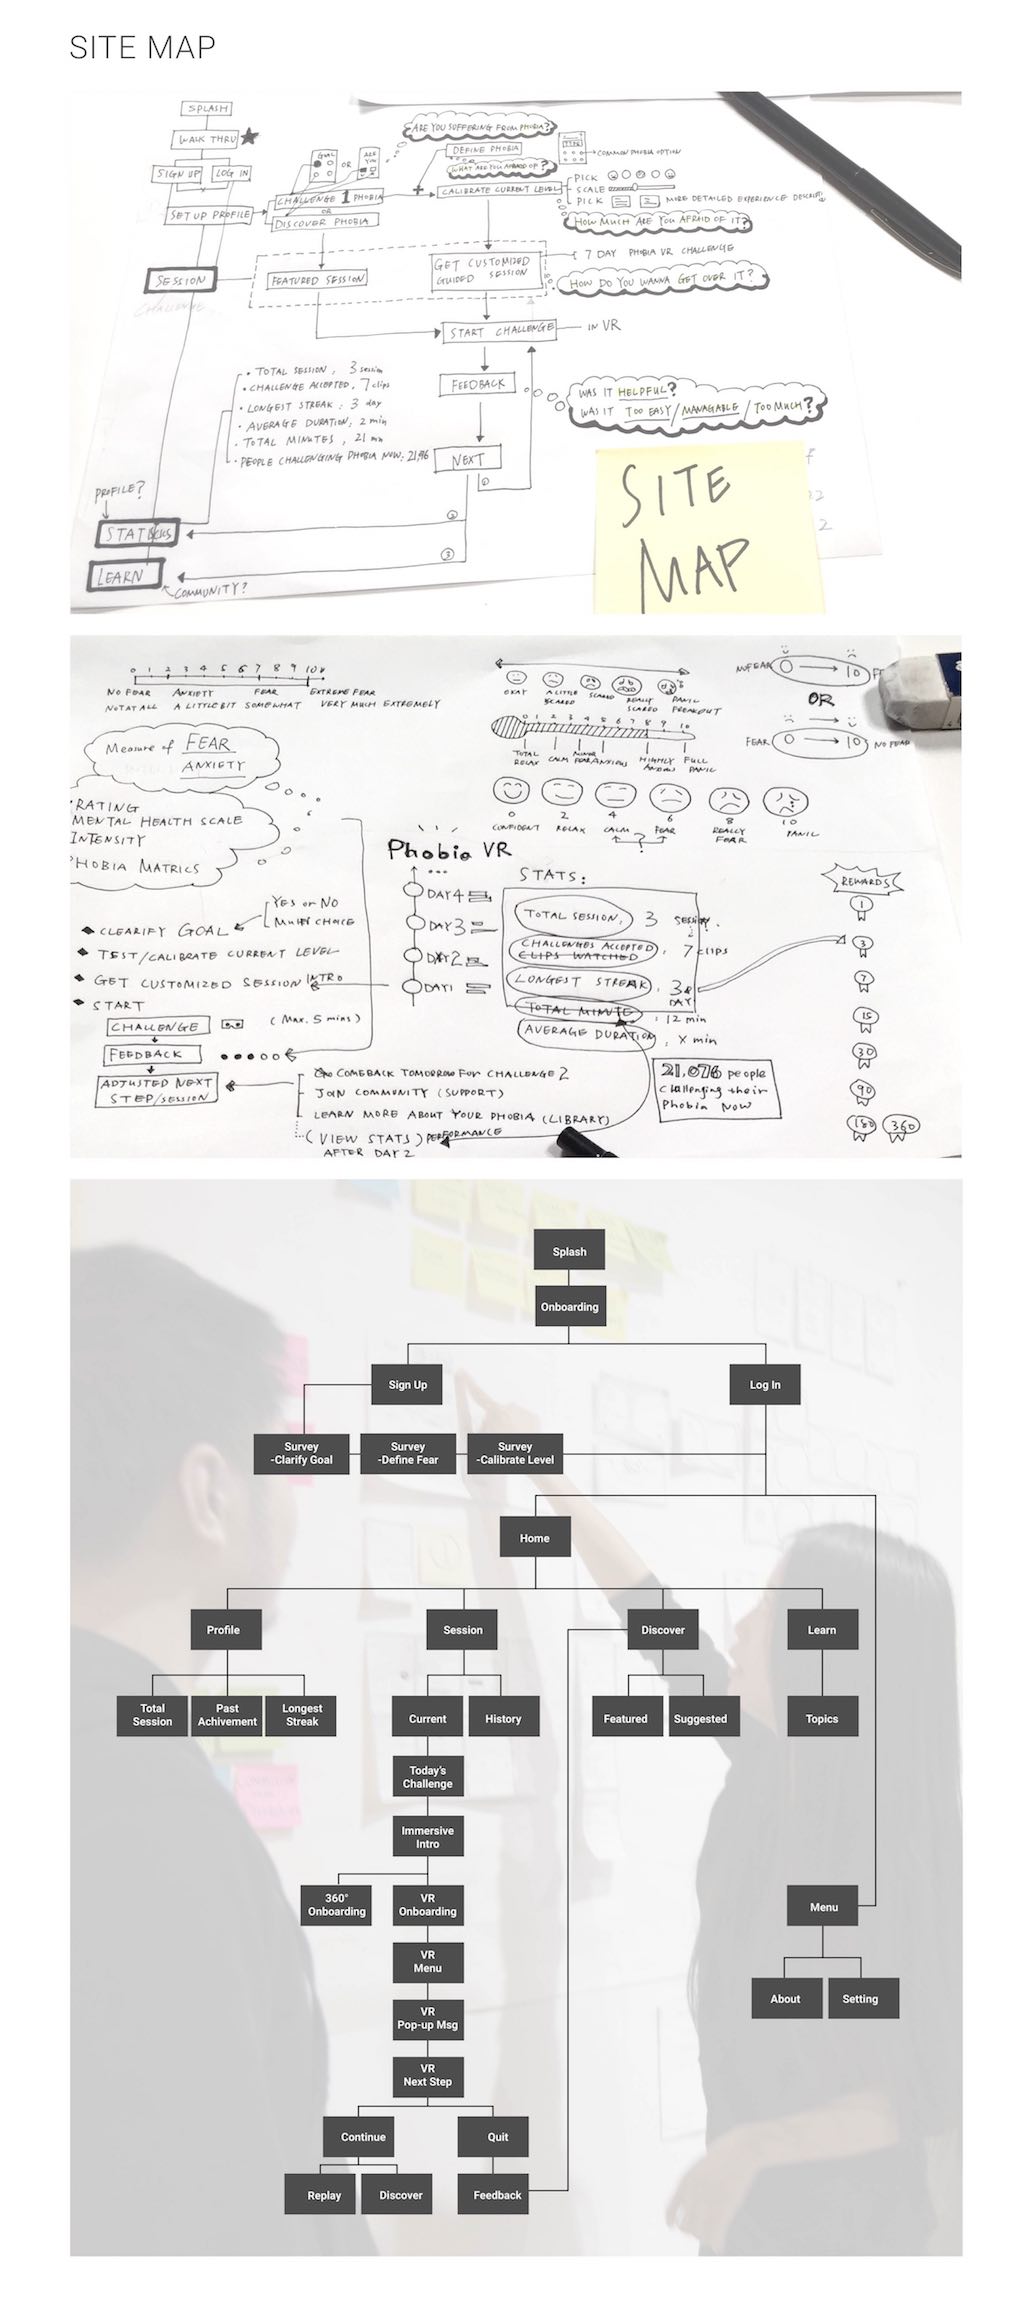 SITE MAP
SPLASH
WALK THRU
SIGN UP
LOG IN
SET UP PROFILE
GOAL
OR
ARE YOU
CHALLENGE 1 PHOBIA
OR
DISCOVER PHOBIA
ARE YOU SUFFERING FROM PHOBIA?
DEFINE PHOBIA
COMMON PHOBIA OPTION
WHAT ARE YOU AFRAID OF?
CALIBRATE CURRENT LEVEL
PICK
SCALE
PICK
MORE DETAILED EXPERIENCE
HOW MUCH ARE YOU AFRAID OF IT?
SESSION
CHALLENGE
FEATURED SESSION
GET CUSTOMIZED
GUIDED SESSION
7 DAY PHOBIA VR CHALLENGE
HOW DO YOU WANNA GET OVER IT?
START CHALLENGE
IN VR
FEEDBACK
WAS IT HELPFUL?
WAS IT TOO EASY / MANAGABLE / TOO MUCH?
NEXT
• TOTAL SESSION, 3 session
• CHALLENGE ACCEPTED, 7 clips
• LONGEST STREAK : 3 day
• AVERAGE DURATION, 2 min
• TOTAL MINUTES, 21 mn
• PEOPLE CHALLENGING PHOBIA NOW: 21,
①
②
③
PROFILE?
LEARN
COMMUNITY?
SITE
MAP
0 1 2 3 4 5 6 7 8 9 10
NO FEAR ANXIETY FEAR EXTREME FEAR
NOT AT ALL A LITTLE BIT SOMEWHAT VERY MUCH EXTREMELY
Measure of FEAR
ANXIETY
RATING
MENTAL HEALTH SCALE
INTENSITY
PHOBIA MATRICS
OKAY
A LITTLE SCARED
SCARED
REALLY SCARED
PANIC FREAKOUT
0 1 2 3 4 5 6 7 8 9 10
TOTAL RELAX
CALM
MINOR FEAR
ANXIOUS
HIGHLY ANXIOUS
FULL PANIC
0 2 4 6 8 10
CONFIDENT RELAX CALM FEAR REALLY FEAR PANIC
?
NO FEAR 0 → 10 F
OR
FEAR 0 → 10 NO FEAR
Phobia VR
DAY 4
DAY 3
DAY 2
DAY 1
STATS:
TOTAL SESSION, 3 session
CHALLENGES ACCEPTED
CLIPS WATCHED : 7 clips
LONGEST STREAK, 3 DAY
TOTAL MINUTE : 12 min
AVERAGE DURATION, X min
21,076 people
challenging their
Phobia Now
REWARDS
1
3
7
15
30
90
180 360
◆ CLEARIFY GOAL
YES or NO
MULTI CHOICE
◆ TEST/CALIBRATE CURRENT LEVEL
◆ GET CUSTOMIZED SESSION INTRO
◆ START
CHALLENGE (Max. 5 mins)
FEEDBACK
ADJUSTED NEXT
STEP/SESSION
COMEBACK TOMORROW FOR CHALLENGE 2
JOIN COMMUNITY (SUPPORT)
LEARN MORE ABOUT YOUR PHOBIA (LIBRARY)
(VIEW STATS) PERFORMANCE
AFTER DAY 2
Splash
Onboarding
Sign Up
Log In
Survey
-Clarify Goal
Survey
-Define Fear
Survey
-Calibrate Level
Home
Profile
Session
Discover
Learn
Total
Session
Past
Achivement
Longest
Streak
Current
History
Featured
Suggested
Topics
Today's
Challenge
Immersive
Intro
360°
Onboarding
VR
Onboarding
Menu
VR
Menu
About
Setting
VR
Pop-up Msg
VR
Next Step
Continue
Quit
Replay
Discover
Feedback